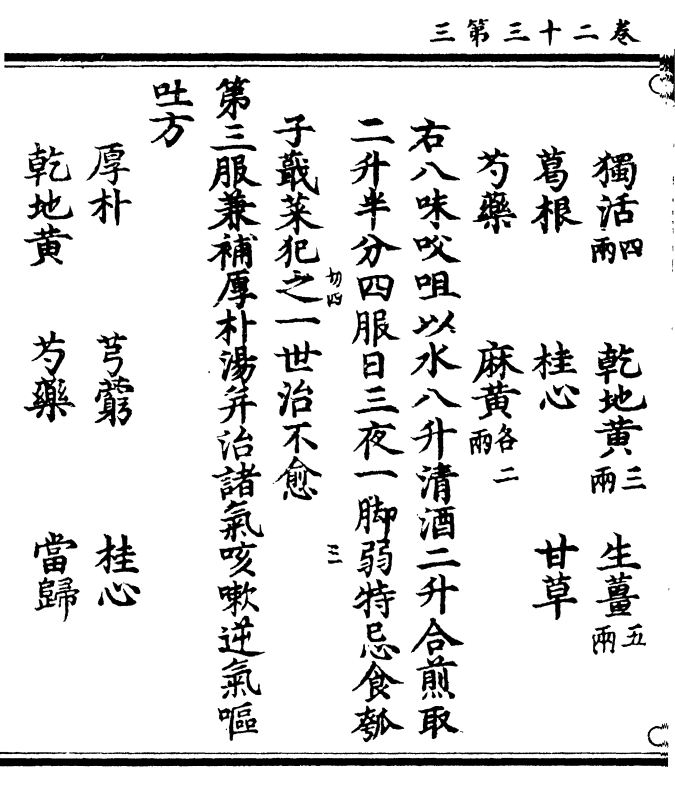 卷二十三第三
獨活四兩 乾地黃三兩 生薑五兩
葛根 桂心 甘草
芍藥 麻黃各二兩
右八味㕮咀以水八升清酒二升合煎取
二升半分四服日三夜一脚弱特忌食瓠
子蕺菜犯之一世治不愈
切四
三
第三服兼補厚朴湯并治諸氣咳嗽逆氣嘔
吐方
厚朴 芎藭 桂心
乾地黃 芍藥 當歸